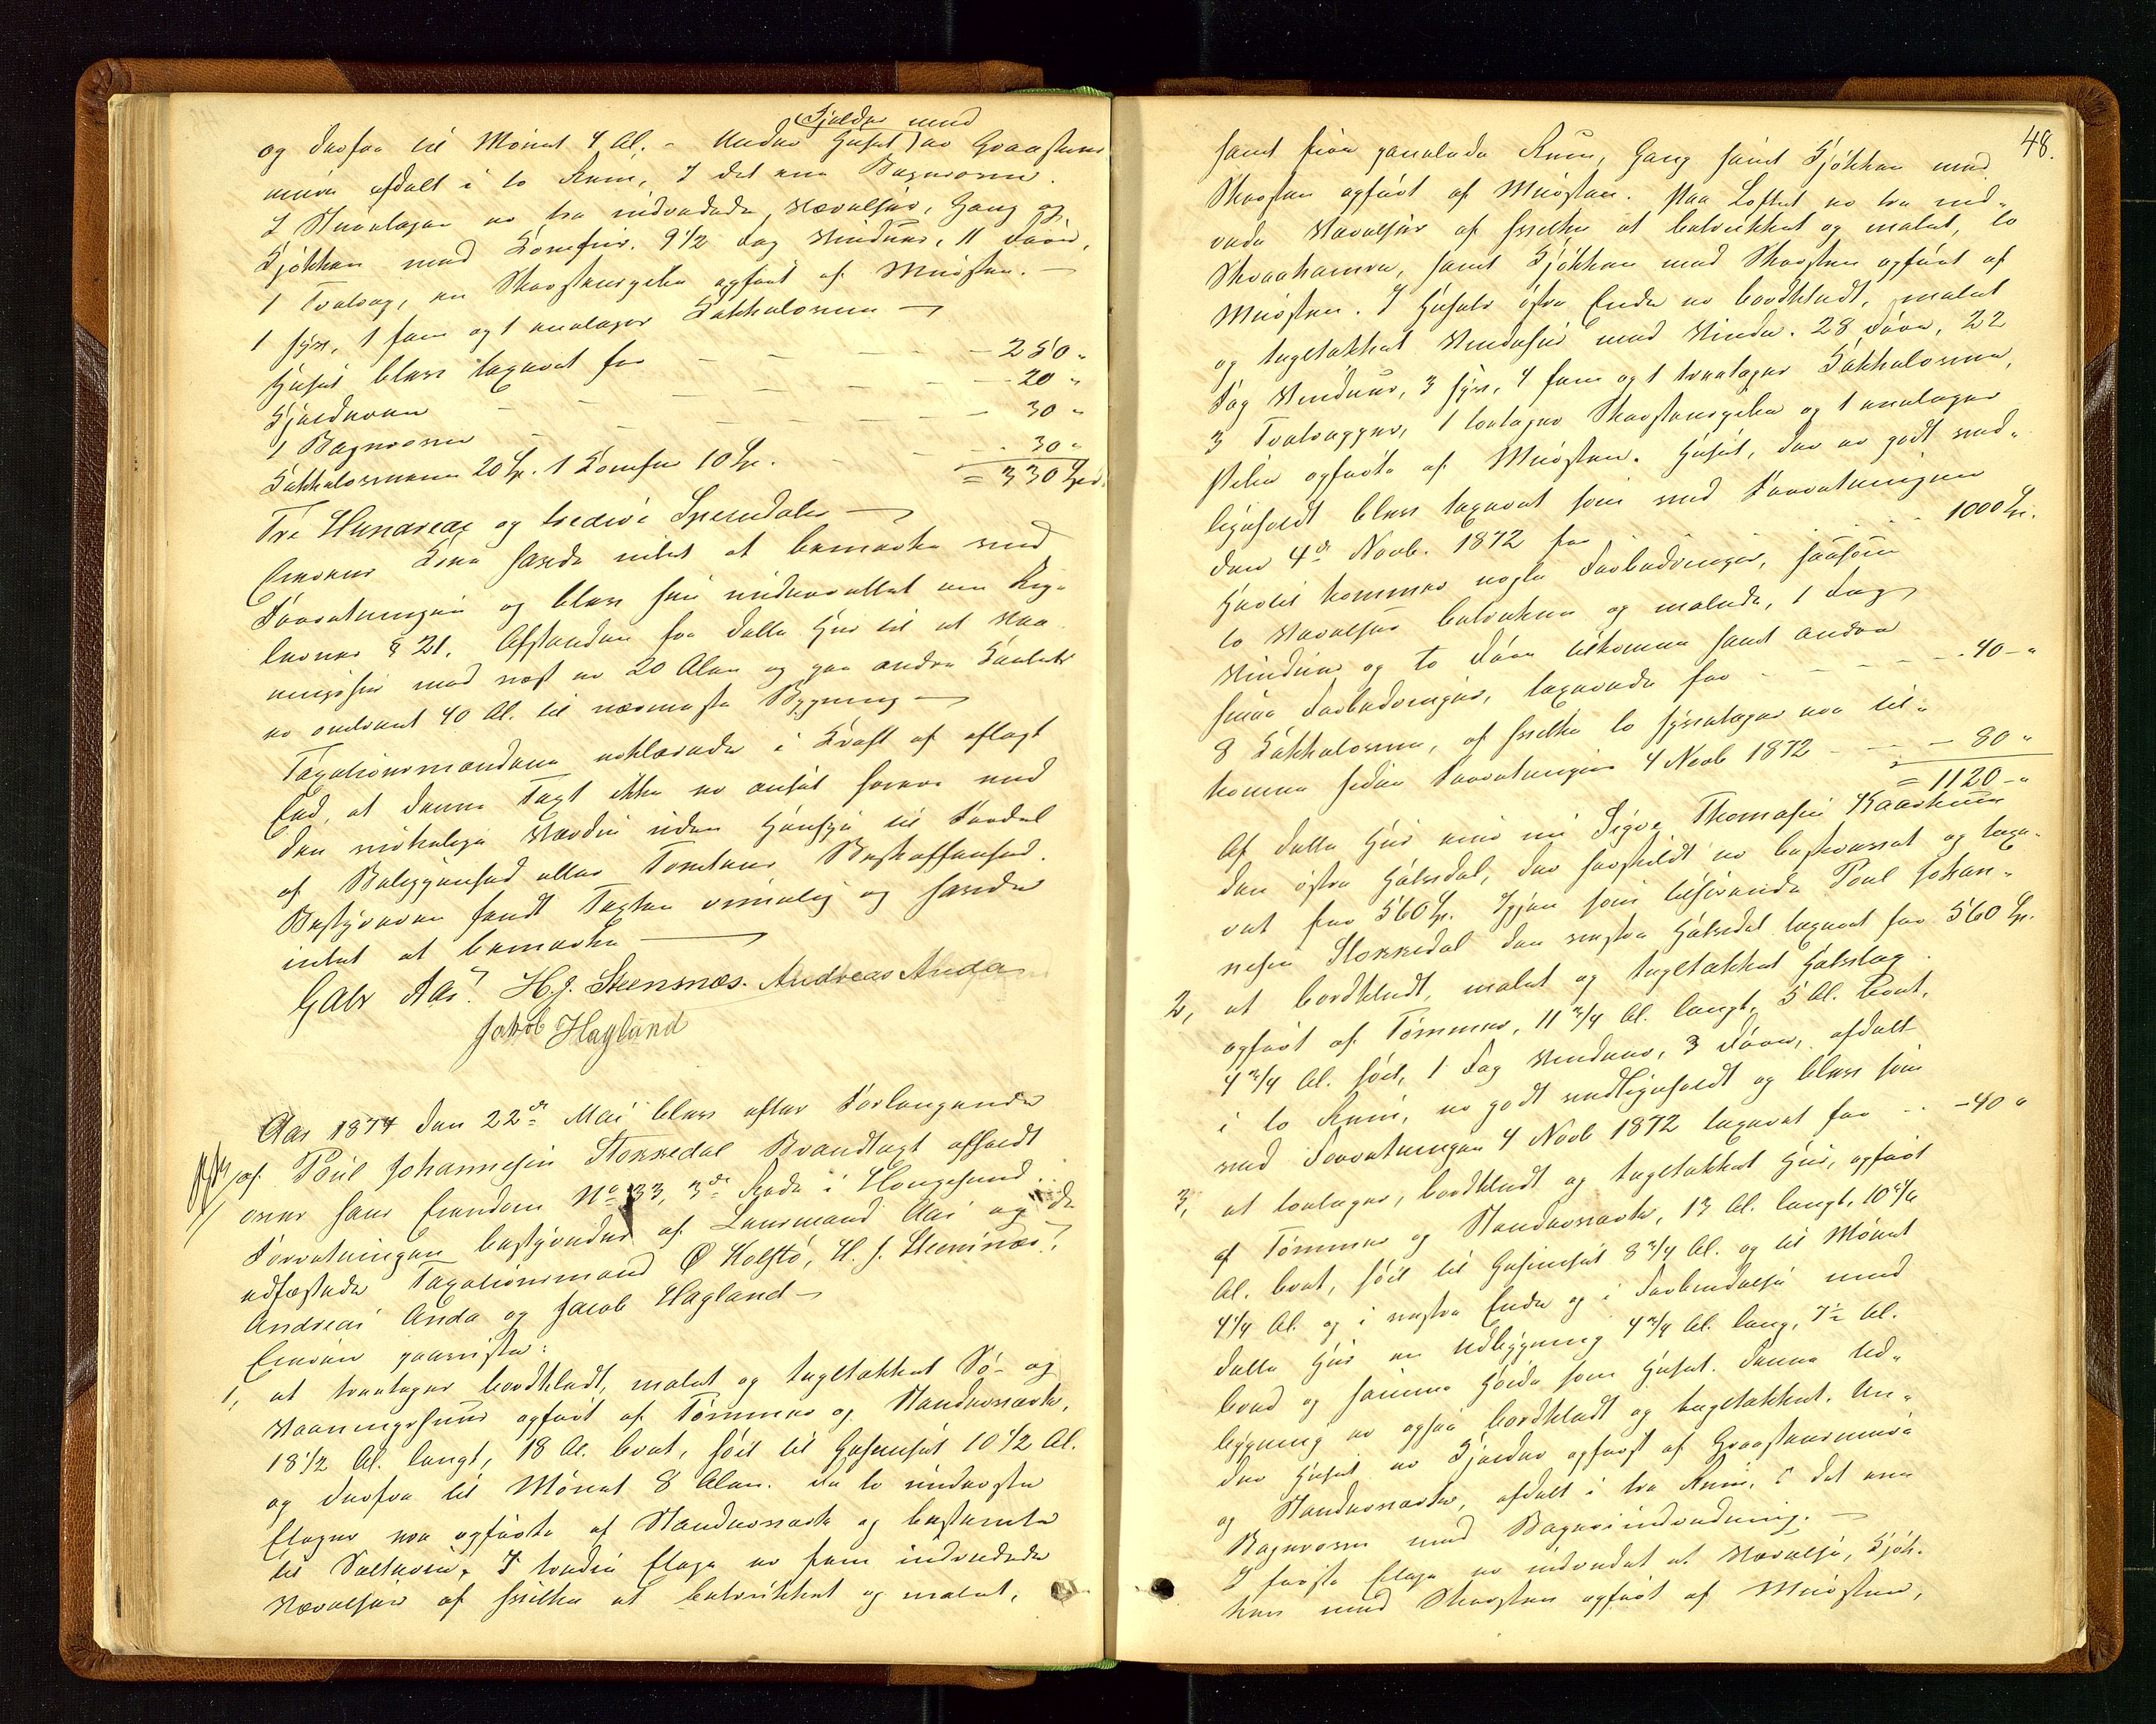 Kjælder med
og derfra til Mønet 4 Al. - Under Huset er Graastens
muur afdelt i to Rum, I det ene Bagerovn.
I Stueetagen er tre indredede Værelser, Gang og
Kjøkken med Komfur. 9 1/2 Fag Vinduer, 11 Døre,
1 Qvalvaag, en Skorstenspibe opført af Muursten. -
1 fyr, 1 fem og 1 enetages Kakkelovne -
Huset blev taxeret for - - - - - 250 "
Kjælderen - - - - - 20 "
1 Bagerovn - - - - - 30 "
Kakkelovnene 20 Sp. 1 Komfur 10 Sp. - - - 30 "
= 330 Spd.
Tre Hundrede og tredive Speciedaler -
Eieren havde intet at bemærke ved
Forretningen og blev han underrettet om Reg-
lernes § 21. Afstanden fra dette Huus til et Vaa
ningshuus mod vest er 20 Alen og paa andre Kanter
er omtrent 40 Al. til nærmeste Bygning -
Taxationsmændene erklærede i Kraft af aflagt
Eed, at denne Taxt ikke er ansat høiere end
den virkelige Værdie uden Hensyn til Fordel
af Beliggenhed eller Tomtens Beskaffenhed.
Bestyreren fandt Taxten rimelig og havde
intet at bemærke -
Gabr Aas. H. J. Steensnæs. Andreas Anda
Jakob Hagland
Aar 1874 den 22de Mai blev efter Forlangende
af Poul Johannesen Stokkedal Brandtaxt afholdt
over hans Eiendom No 133, 3de Rode i Haugesund.
Forretningen bestyredes af Lensmand Aas og de
edfæstede Taxationsmænd Ø Kolstø, H. J. Steensnæs,
Andreas Anda og Jacob Hagland -
Eieren paaviste:
1, et treetages bordklædt, malet og tegltækket Sø- og
Vaaningshuus opført af Tømmer og Stenderværk,
18 1/2 Al. langt, 18 Al. bredt, høit til Gesimset 10 1/2 Al.
og derfra til Mønet 8 Alen. De to underste
Etager ere opførte af Stenderværk og bestemte
til Salteri. I tredie Etage er fem indredede
Værelser af hvilke et betrækket og malet,
48.
samt fire panelede Rum, Gang samt Kjøkken med
Skorsten opført af Muursten. Paa Loftet er tre ind-
rede Værelser af hvilke et betrækket og malet, to
Skraakamre, samt Kjøkken med Skorsten opført af
Muursten. I Husets østre Ende er bordklædt, malet
og tegltækket Vindehuus med Vinde. 28 Døre, 22
Fag Vinduer, 3 fyr, 4 fem og 1 treetages Kakkelovne,
3 Qvalvagger, 1 toetages Skorstenspibe og 1 enetages
Pibe opførte af Muursten. Huset, der er godt ved-
ligeholdt blev taxeret som ved Forretningen
den 4de Novb. 1872 for - - - 1000 Sp.
Hertil kommer nogle Forbedringer, saasom
to Værelser betrukne og malede, 1 Fag
Vinduer og to Døre tilkomne samt andre
smaa Forbedringer, taxerede for - - - - 40 - "
8 Kakkelovne, af hvilke to fyretages ere til-
komne siden Forretningen 4 Novb 1872 - - - 80 "
= 1120 - "
Af dette Huus eier nu Sigve Thomasen Kaarhuus
den østre Halvdel, der særskildt er beskrevet og taxe-
ret for 560 Sp. Igjen som tilhørende Poul Johan-
nesen Stokkedal den vestre Halvdel taxeret for 560 Sp.
2, et bordklædt, malet og tegltækket Halvtag
opført af Tømmer, 11 3/4 Al. langt, 5 Al. bredt,
4 3/4 Al. høit, 1 Fag Vinduer, 3 Døre, afdelt
i to Rum, er godt vedligeholdt og blev som
ved Forretningen 4 Novb 1872 taxeret for - - 40 "
3, et toetages, bordklædt og tegltækket Huus, opført
af Tømmer og Stenderværk, 13 Al. langt, 10 1/4
Al. bredt, høit til Gesimset 8 3/4 Al. og til Mønet
4 1/4 Al. og i vestre Ende og i Forbindelse med
dette Huus en Udbygning 4 3/4 Al. lang, 7 1/2 Al.
bred og samme Høide som Huset. Denne Ud-
bygning er ogsaa bordklædt og tegltækket. Un-
der Huset er Kjælder opført af Graastensmuur
og Stenderværk, afdelt i tre Rum, i det ene
Bagerovn med Bageriindredning. -
I første Etage er indredet et Værelse, Kjøk-
ken med Skorsten opført af Muursten,